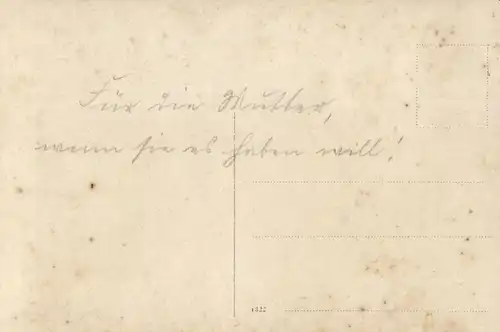 Für die Mutter,
wenn sie es haben will!
4822